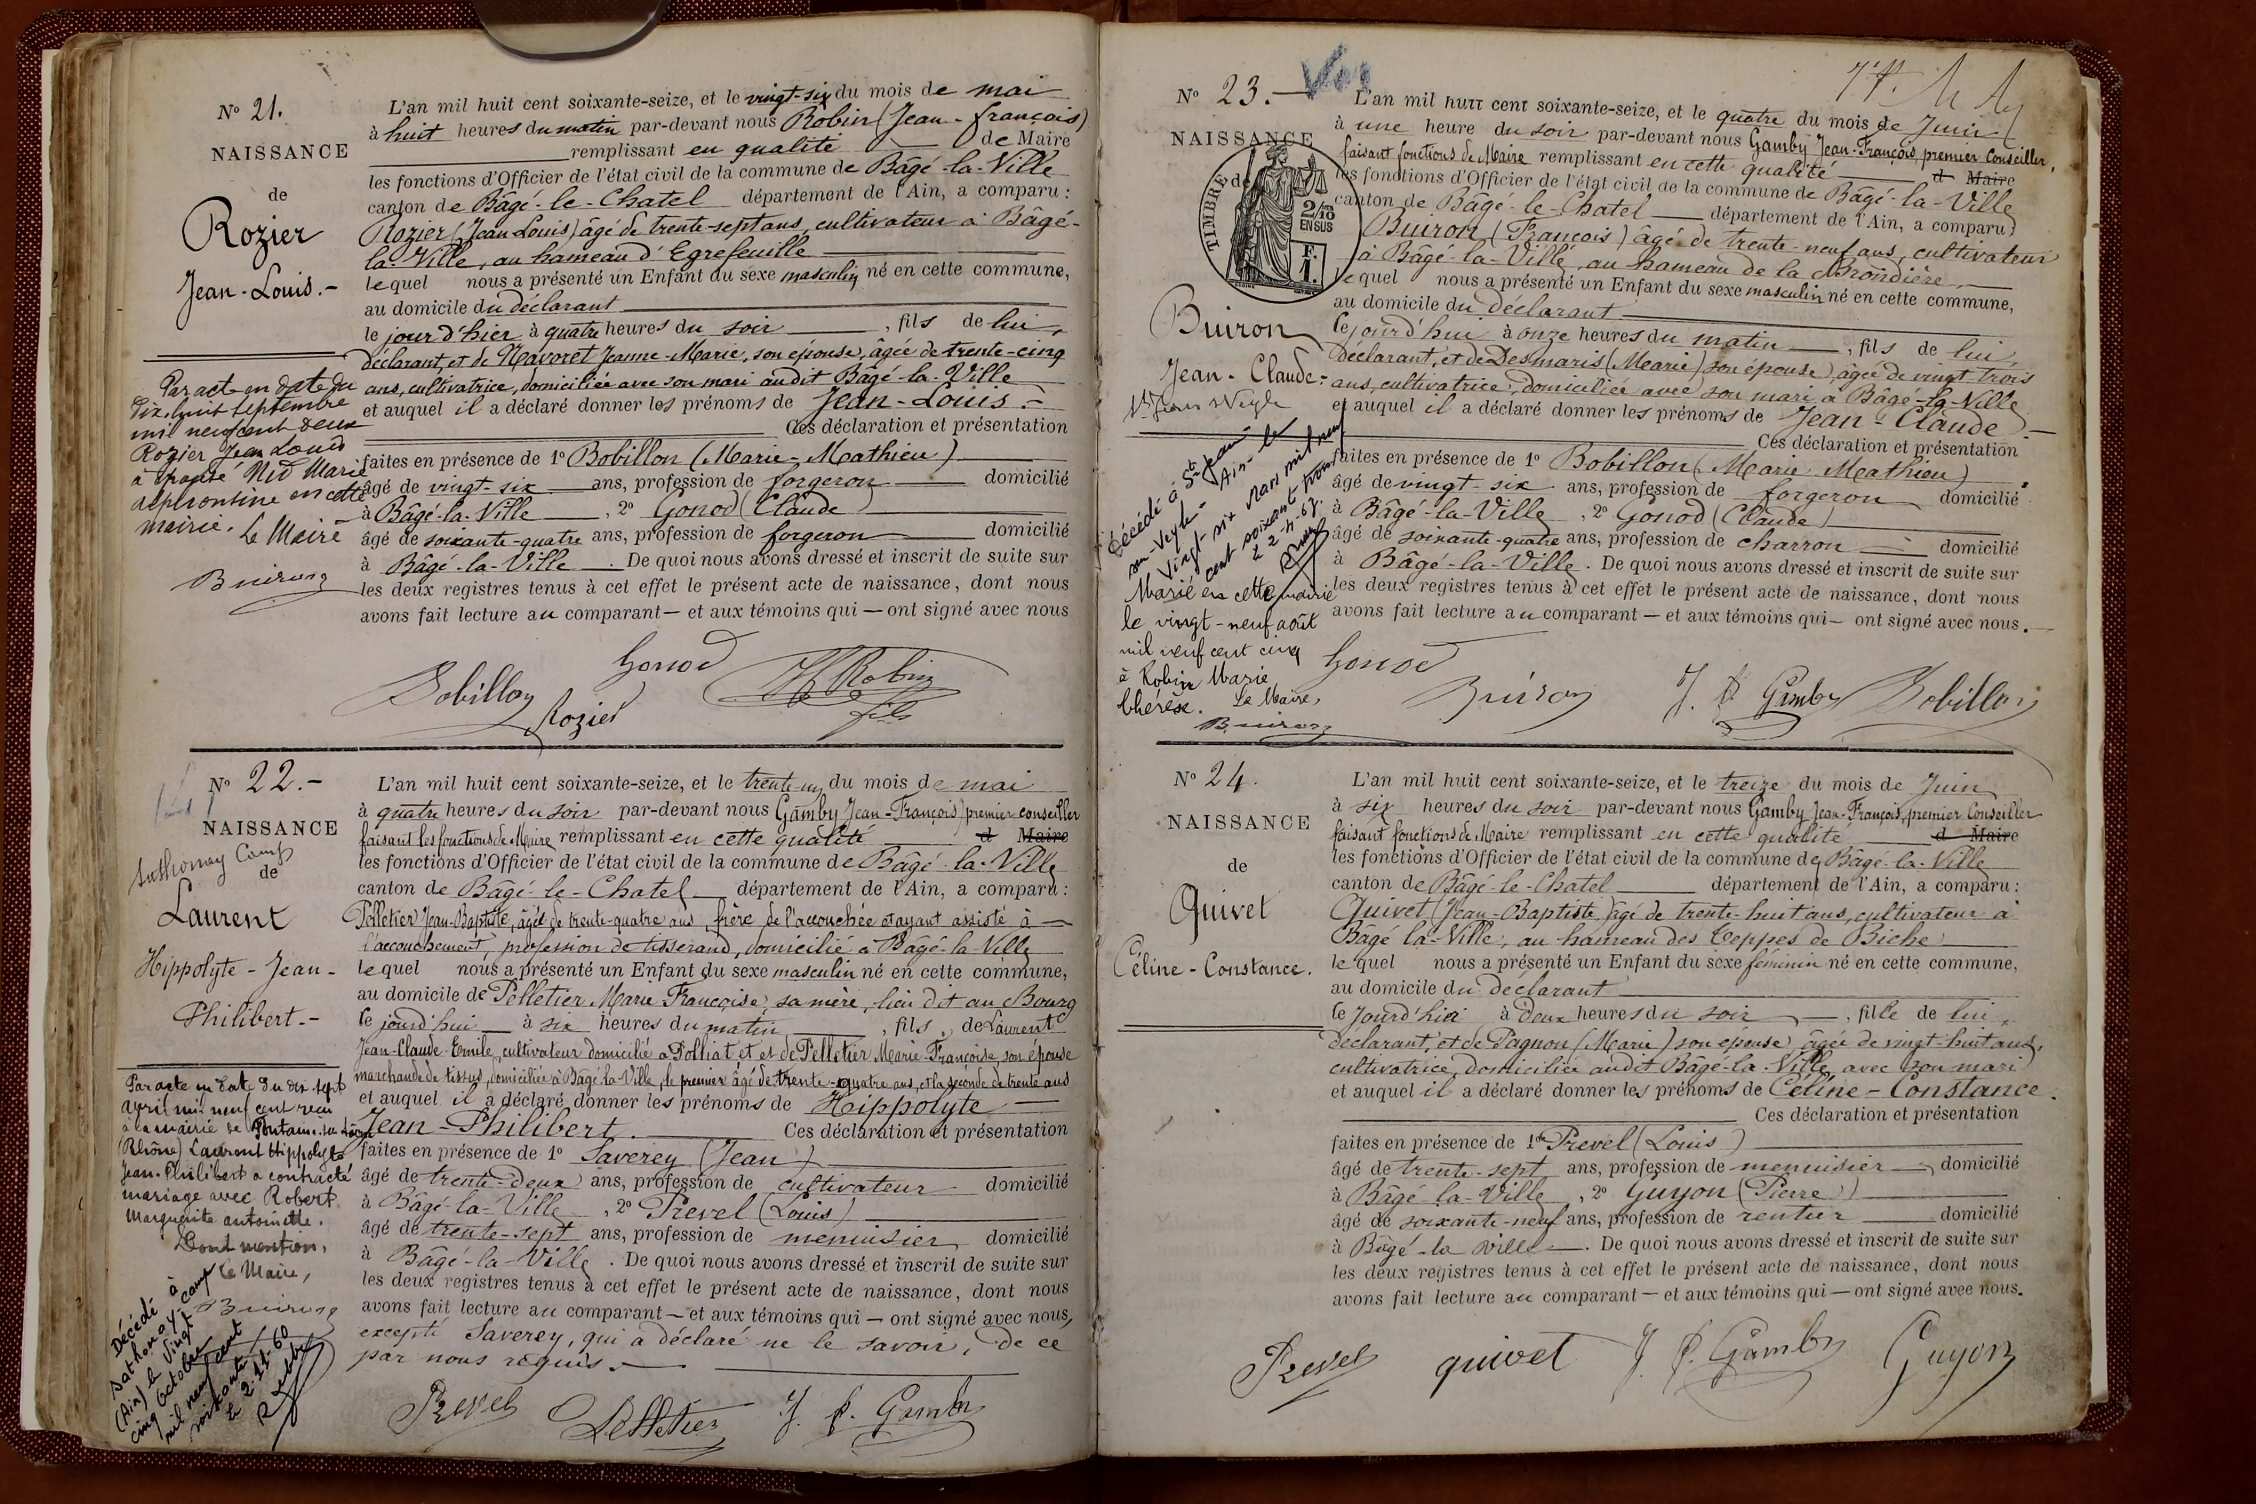 N° 21.
NAISSANCE
de
Rozier
Jean-Louis.-
Par act en date du
dix-huit septembre
mil neuf cent deux
Rozier Jean Louis
à épousé Marie
en cette
mairie.
Le Maire
Buiron
L'an mil huit cent soixante-seize, et le vingt-six du mois de mai
à huit heures du matin par-devant nous Robin (Jean-François)
remplissant en qualité de Maire
les fonctions d'Officier de l'état civil de la commune de Bâgé-la-Ville
canton de Bâgé-le-Chatel département de l'Ain, a comparu :
Rozier (Jean Louis) âgé de trente-sept ans, cultivateur à Bâgé-
la-Ville, au hameau d'Egrefeuille
lequel nous a présenté un Enfant du sexe masculin né en cette commune,
au domicile du déclarant
le jour d'hier à quatre heures du soir , fils de lui,
déclarant, et de Navoret Jeanne-Marie, son épouse, âgée de trente-cinq
ans, cultivatrice, domiciliée avec son mari audit Bâgé-la-Ville
et auquel il a déclaré donner les prénoms de Jean-Louis.-
Ces déclaration et présentation
faites en présence de 1° Bobillon (Marie-Mathieu)
âgé de vingt-six ans, profession de forgeron domicilié
à Bâgé-la-Ville , 2° Gonod (Claude)
âgé de soixante-quatre ans, profession de forgeron domicilié
à Bâgé-la-Ville . De quoi nous avons dressé et inscrit de suite sur
les deux registres tenus à cet effet le présent acte de naissance, dont nous
avons fait lecture au comparant — et aux témoins qui — ont signé avec nous
Gonod
Bobillon
Rozier
Robin
fils
N° 22.-
NAISSANCE
Sathonay Camp
de
Laurent
Hippolyte-Jean-
Philibert.-
Par acte en date du dix-sept
avril mil neuf cent reçu
à la mairie de Fontaine-su-Saône
(Rhône) Laurent Hippolyte
Jean-Philibert a contracté
mariage avec Robert
Marguerite antoinette.
Dont mention,
Le Maire,
Buiron
Décédé à
Sathonay-camp
(Ain) le vingt
cinq octobre
mil neuf cent
soixante
le 2-11-60
L'an mil huit cent soixante-seize, et le trente un du mois de mai
à quatre heures du soir par-devant nous Gamby Jean-François) premier conseiller
faisant les fonctions de Maire remplissant en cette qualité d Maire
les fonctions d'Officier de l'état civil de la commune de Bâgé-la-Ville
canton de Bâgé-le-Chatel département de l'Ain, a comparu :
Pelletier Jean-Baptiste, âgé de trente-quatre ans, frère de l'accouchée et ayant assisté à
l'accouchement, profession de tisserand, domicilié à Bâgé-la-Ville
lequel nous a présenté un Enfant du sexe masculin né en cette commune,
au domicile de Pelletier Marie Françoise, sa mère, lieu dit au Bourg
le jourd'hui à six heures du matin , fils de Laurent
Jean-Claude-Emile, cultivateur domicilié à Polliat et et de Pelletier Marie-Françoise, son épouse
marchande de tissus, domiciliée à Bâgé-la-Ville, le premier âgé de trente-quatre ans, et la seconde de trente ans
et auquel il a déclaré donner les prénoms de Hippolyte
Jean-Philibert. Ces déclaration et présentation
faites en présence de 1° Saverey (Jean)
âgé de trente-deux ans, profession de cultivateur domicilié
à Bâgé-la-Ville , 2° Prevel (Louis)
âgé de trente-sept ans, profession de menuisier domicilié
à Bâgé-la-Ville . De quoi nous avons dressé et inscrit de suite sur
les deux registres tenus à cet effet le présent acte de naissance, dont nous
avons fait lecture au comparant — et aux témoins qui — ont signé avec nous,
excepté Saverey, qui a déclaré ne le savoir, de ce
par nous requis.
Prevel
Pelletier
J. f. Gamby
N° 23.-
Vu
NAISSANCE
de
TIMBRE
2/10
EN SUS
F.
1.
Buiron
Jean-Claude-
St Jean s Veyle
Décédé à St Jean-
sur-Veyle - Ain- le
vingt six Mars mil neuf
cent soixante trois
Marié en cette mairie
le vingt-neuf août
mil neuf cent cinq
à Robin Marie
Thérèse. Le Maire,
Buiron
L'an mil huit cent soixante-seize, et le quatre du mois de Juin
à une heure du soir par-devant nous Gamby Jean-François, premier Conseiller,
faisant fonctions de Maire remplissant en cette qualité d Maire
les fonctions d'Officier de l'état civil de la commune de Bâgé-la-Ville
canton de Bâgé-le-Chatel département de l'Ain, a comparu)
Buiron (François) âgé de trente-neuf ans, cultivateur
à Bâgé-la-Ville, au hameau de la
lequel nous a présenté un Enfant du sexe masculin né en cette commune,
au domicile du déclarant
le jourd'hui à onze heures du matin , fils de lui,
déclarant, et de Desmaris (Marie) son épouse, âgée de vingt-trois
ans, cultivatrice, domiciliée avec son mari à Bâgé-la-Ville
et auquel il a déclaré donner les prénoms de Jean-Claude
Ces déclaration et présentation
faites en présence de 1° Bobillon (Marie Mathieu)
âgé de vingt-six ans, profession de forgeron domicilié
à Bâgé-la-Ville , 2° Gonod (Claude)
âgé de soixante-quatre ans, profession de charron domicilié
à Bâgé-la-Ville . De quoi nous avons dressé et inscrit de suite sur
les deux registres tenus à cet effet le présent acte de naissance, dont nous
avons fait lecture au comparant — et aux témoins qui — ont signé avec nous.
Gonod
Buiron
J. f. Gamby
Bobillon
N° 24.
NAISSANCE
de
Quivet
Céline-Constance.
L'an mil huit cent soixante-seize, et le treize du mois de Juin
à six heures du soir par-devant nous Gamby Jean-François, premier Conseiller
faisant fonctions de Maire remplissant en cette qualité d Maire
les fonctions d'Officier de l'état civil de la commune de Bâgé-la-Ville
canton de Bâgé-le-Chatel département de l'Ain, a comparu :
Quivet (Jean-Baptiste) âgé de trente-huit ans, cultivateur à
Bâgé la-Ville, au hameau des Teppes de Biche
lequel nous a présenté un Enfant du sexe féminin né en cette commune,
au domicile du déclarant
le Jourd'hui à deux heures du soir , fille de lui,
déclarant, et de Pagnon (Marie) son épouse âgée de vingt-huit ans,
cultivatrice, domiciliée audit Bâgé-la-Ville avec son mari
et auquel il a déclaré donner les prénoms de Céline-Constance.
Ces déclaration et présentation
faites en présence de 1° Prevel (Louis)
âgé de trente-sept ans, profession de menuisier domicilié
à Bâgé-la-Ville , 2° Guyon (Pierre)
âgé de soixante-neuf ans, profession de rentier domicilié
à Bâgé-la ville . De quoi nous avons dressé et inscrit de suite sur
les deux registres tenus à cet effet le présent acte de naissance, dont nous
avons fait lecture au comparant — et aux témoins qui — ont signé avec nous.
Prevel
quivet
J. f. Gamby
Guyon